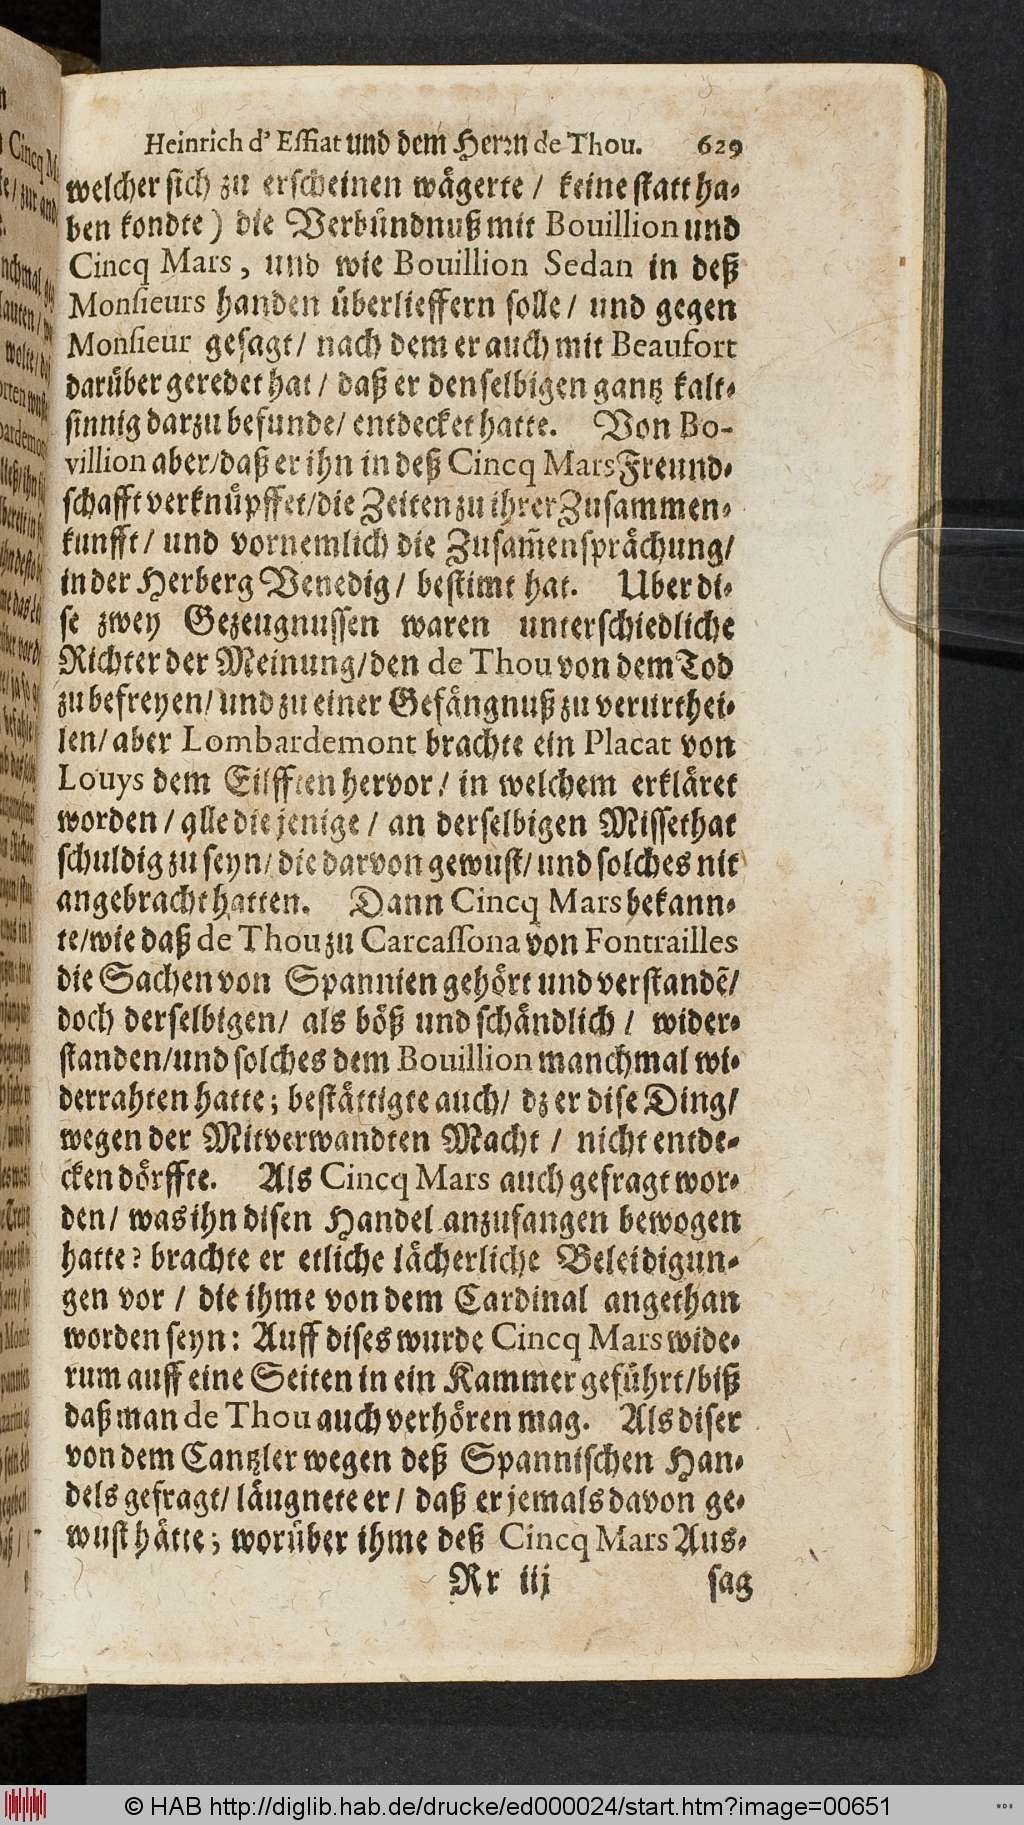 Heinrich d' Effiat und dem Herrn de Thou. 629
welcher sich zu erscheinen wägerte / keine statt ha-
ben kondte ) die Verbündnuß mit Bouillion und
Cincq Mars, und wie Bouillion Sedan in deß
Monsieurs handen überlieffern solle / und gegen
Monsieur gesagt / nach dem er auch mit Beaufort
darüber geredet hat / daß er denselbigen gantz kalt-
sinnig darzu befunde / entdecket hatte. Von Bo-
villion aber / daß er ihn in deß Cincq Mars Freund-
schafft verknüpffet / die Zeiten zu ihrer Zusammen-
kunfft / und vornemlich die Zusam̃ensprächung /
in der Herberg Venedig / bestimt hat. Uber di-
se zwey Gezeugnussen waren unterschiedliche
Richter der Meinung / den de Thou von dem Tod
zu befreyen / und zu einer Gefängnuß zu verurthei-
len / aber Lombardemont brachte ein Placat von
Louys dem Eilfften hervor / in welchem erkläret
worden / alle die jenige / an derselbigen Missethat
schuldig zu seyn / die darvon gewust / und solches nit
angebracht hatten. Dann Cincq Mars bekann-
te / wie daß de Thou zu Carcassona von Fontrailles
die Sachen von Spannien gehört und verstandẽ /
doch derselbigen / als böß und schändlich / wider-
standen / und solches dem Bouillion manchmal wi-
derrahten hatte; bestättigte auch / dz er dise Ding /
wegen der Mitverwandten Macht / nicht entde-
cken dörffte. Als Cincq Mars auch gefragt wor-
den / was ihn disen Handel anzufangen bewogen
hatte? brachte er etliche lächerliche Beleidigun-
gen vor / die ihme von dem Cardinal angethan
worden seyn: Auff dises wurde Cincq Mars wide-
rum auff eine Seiten in ein Kammer geführt / biß
daß man de Thou auch verhören mag. Als diser
von dem Cantzler wegen deß Spannischen Han-
dels gefragt / läugnete er / daß er jemals davon ge-
wust hätte; worüber ihme deß Cincq Mars Aus-
Rr iij sag
© HAB http://diglib.hab.de/drucke/ed000024/start.htm?image=00651